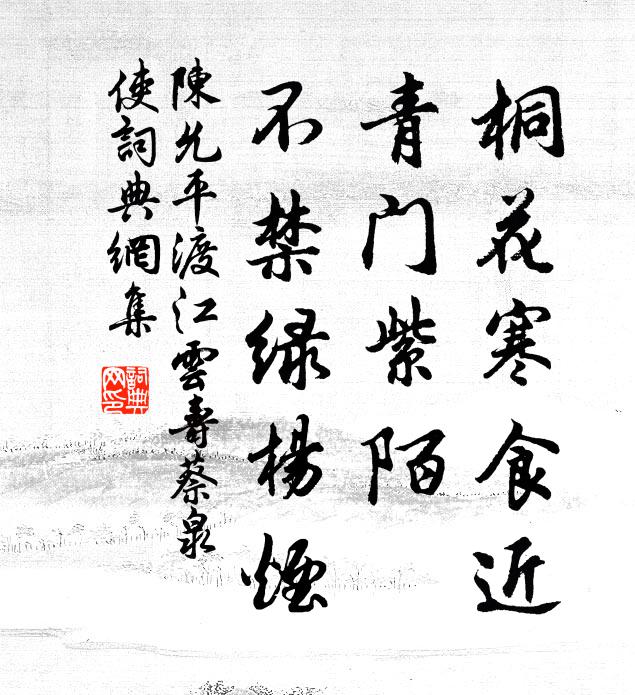 桐花寒食近
青门紫陌
不禁绿楊煙
陳允平渡江雲壽蔡泉
使詞典網集
詞典网印